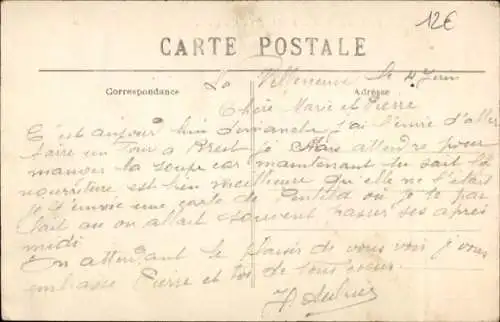 12€
CARTE POSTALE
Correspondance
Adresse
La Villeneuve le 4 Juin
Chère Marie et Pierre
C'est aujour hui Dimanche j'ai l'envie d'aller
faire un tour a Brest je vais attendre pour
manger la soupe car maintenant tu sait la
nourriture est bien meilleure qu'elle ne l'était
je t'envoie une carte de où je te
fait au on allait souvent passer ses après
midi
En attendant le plaisir de vous voir j vous
embrasse Pierre et toi de tous coeur.